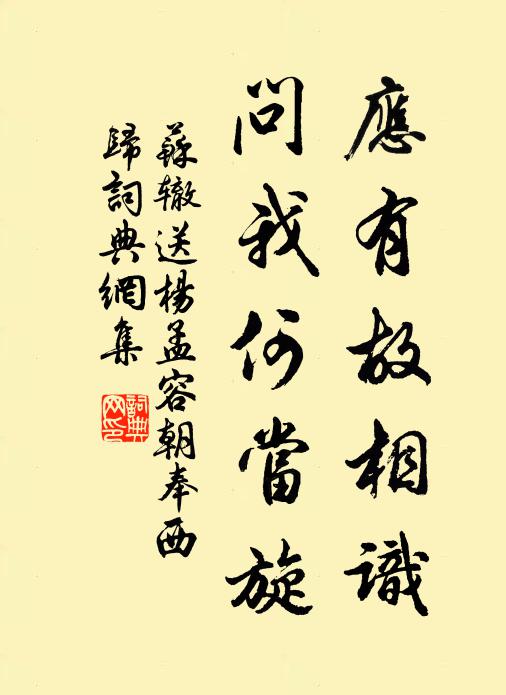 應有故相識
問我何當旋
蘇辙送楊孟容朝奉西
歸詞典網集
詞典
网印